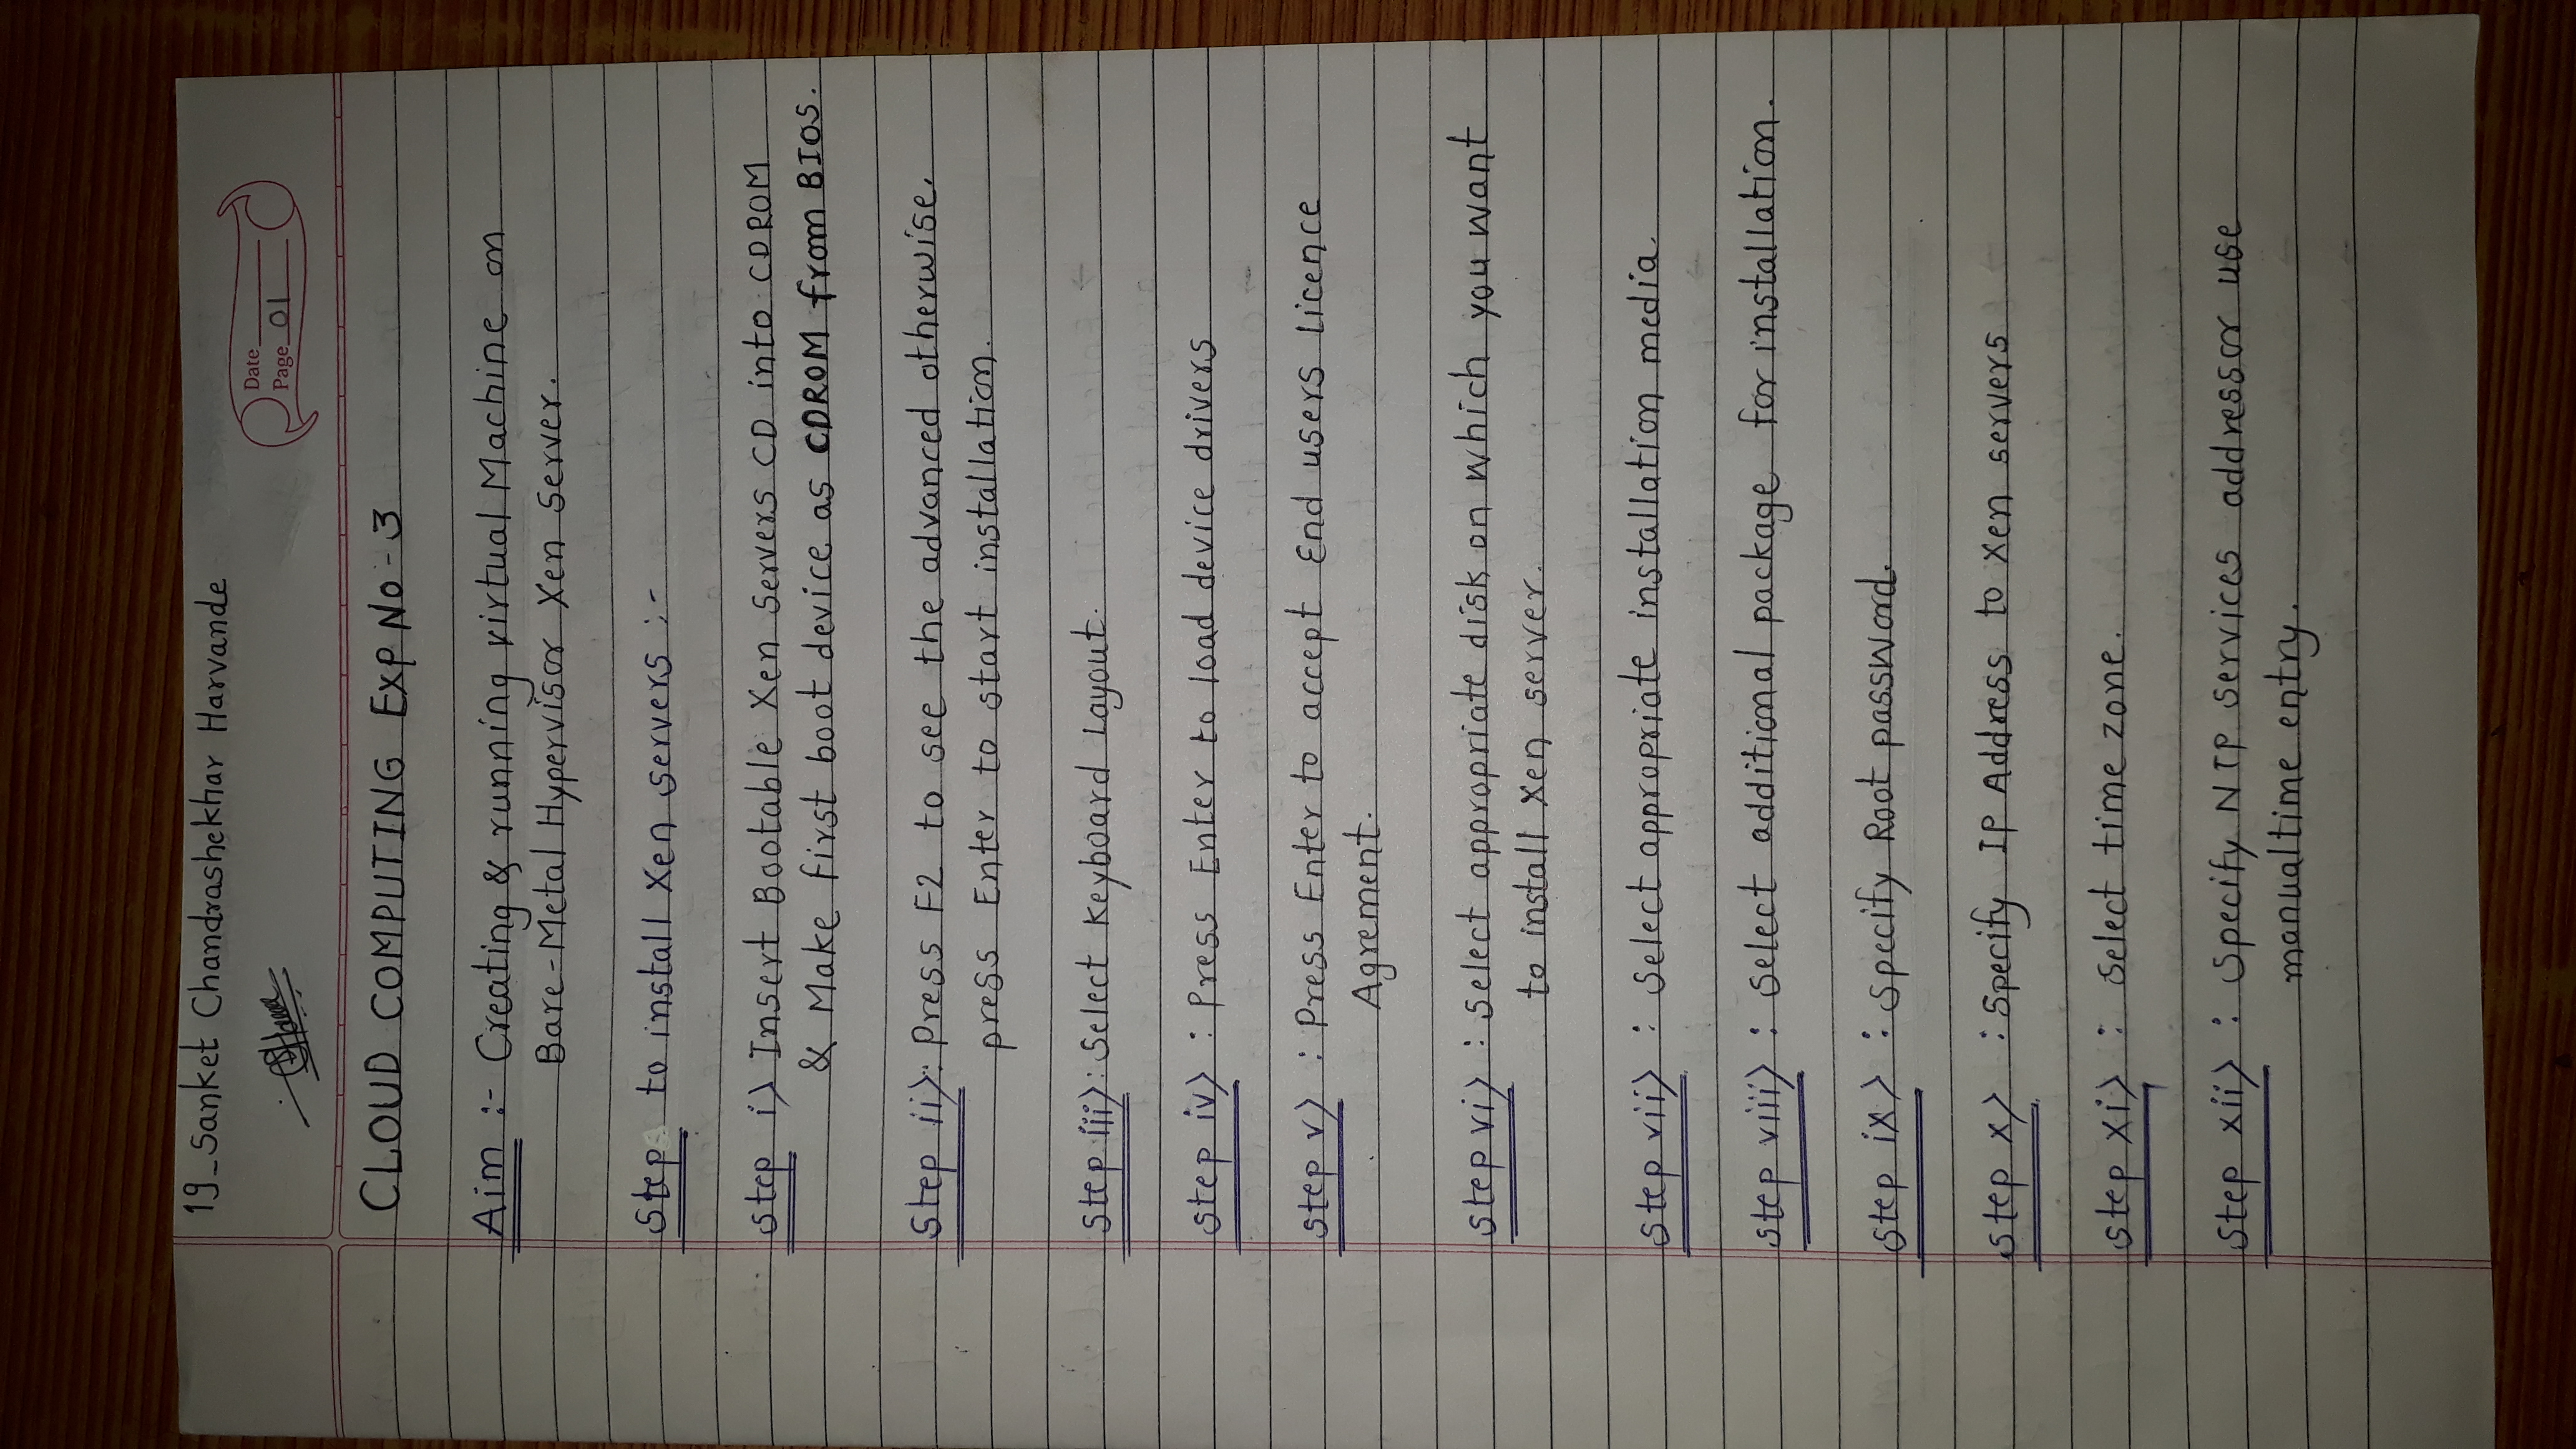 19_Sanket Chandrashekhar Harvande
Date
Page 01
CLOUD COMPUTING Exp No - 3
Aim :- Creating & running virtual Machine on
Bare-Metal Hypervisor Xen Server.
Step to install Xen servers :-
Step i) Insert Bootable Xen Servers CD into CDROM
& Make first boot device as CDROM from BIOS.
Step ii): Press F2 to see the advanced otherwise.
press Enter to start installation.
Step iii): Select Keyboard Layout.
Step iv) : Press Enter to load device drivers
Step v) : Press Enter to accept End users licence
Agrement.
Step vi) : Select appropriate disk on which you want
to install Xen server.
Step vii) : Select appropriate installation media.
Step viii) : Select additional package for installation.
Step ix) : Specify Root password.
Step x) : Specify IP Address to Xen servers
Step xi) : Select time zone.
Step xii) : Specify NTP services address or use
manual time entry.